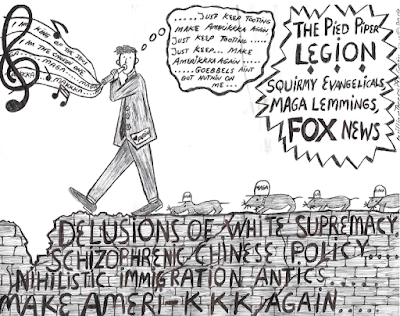 I AM KING OF THE JEWS
I AM THE CHOSEN ONE
MAGA
.....JUST KEEP TOOTING
MAKE AMERIKKKA AGAIN
JUST KEEP TOOTING ....
JUST KEEP... MAKE
AMERIKKKA AGAIN .....
.....GOEBBELS AINT
GOT NUTHIN ON
ME...
THE PIED PIPER
LEGION
SQUIRMY EVANGELICALS
MAGA LEMMINGS,
FOX NEWS
MAGA
DELUSIONS OF WHITE SUPREMACY
SCHIZOPHRENIC CHINESE POLICY....
NIHILISTIC IMMIGRATION ANTICS.....
MAKE AMERI-KKK AGAIN.....